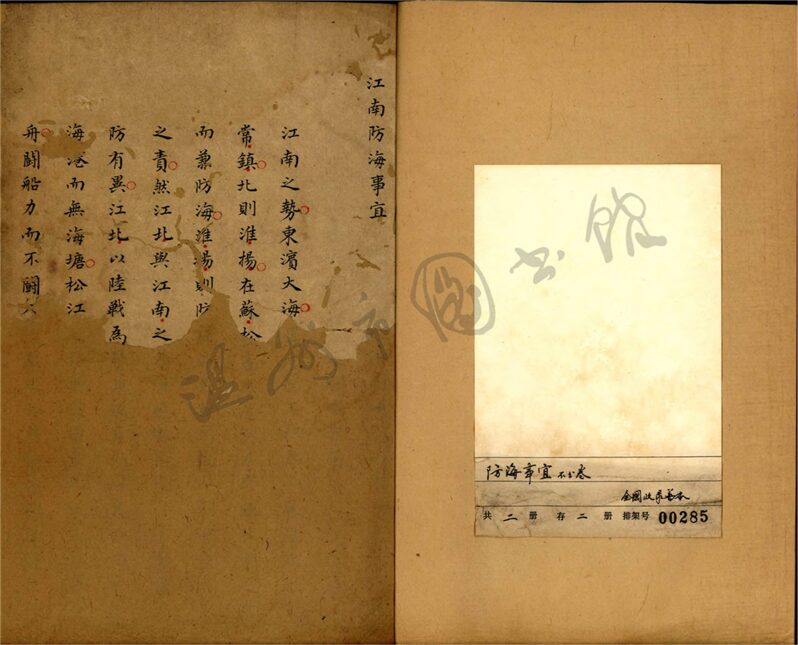 江南防海事宜
江南之勢東濱大海
常鎮北則淮揚在蘇松
而兼防海淮揚則防
之責然江北與江南之
防有異江北以陸戰為
海港而無海塘松江
舟鬪船力而不鬪
温州市图书馆
防海事宜不分卷
全國收录善本
共二册存二册排架号00285